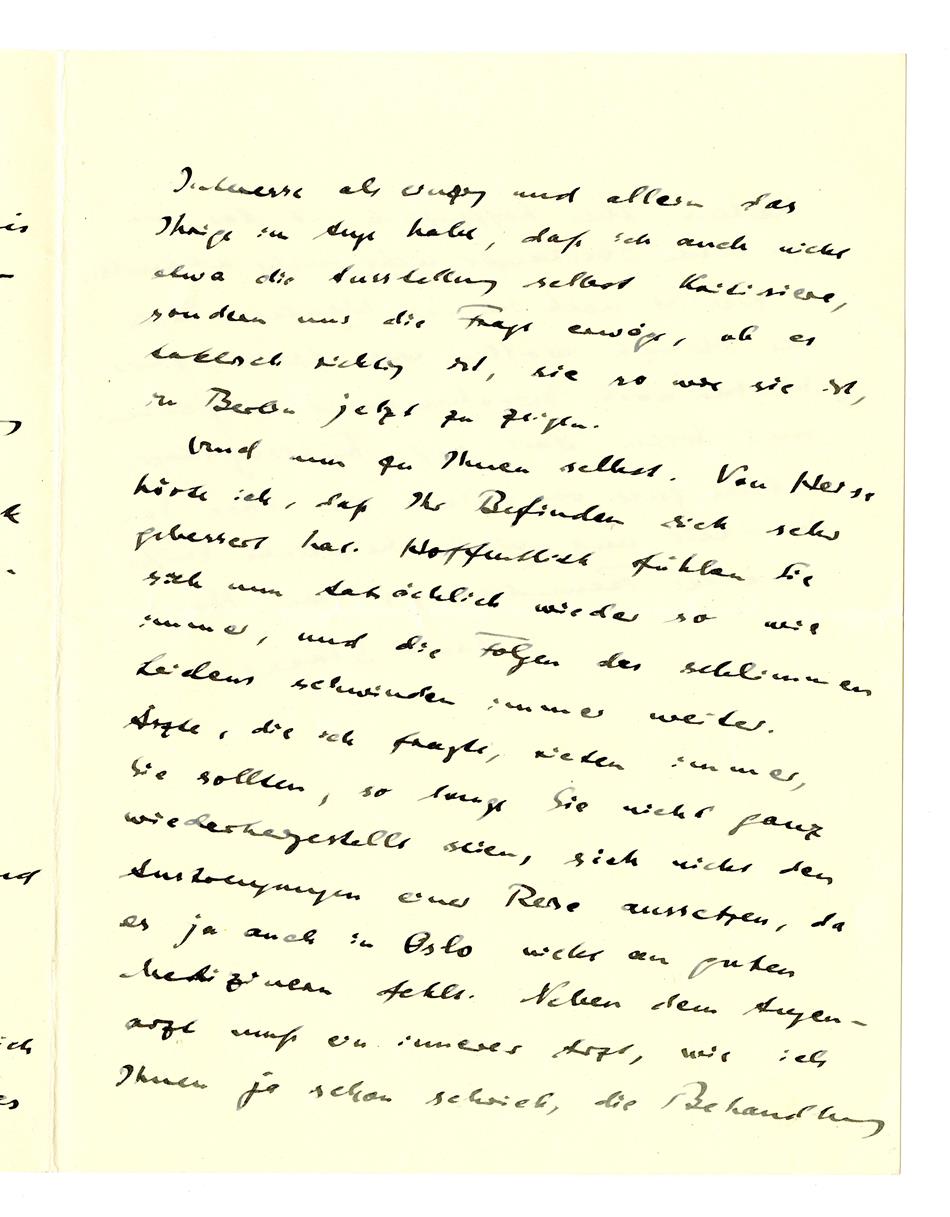 Interesse als einzig und allein das
Ihrige im Auge habe, daß ich auch nicht
etwa die Ausstellung selbst kritisiere,
sondern nur die Frage erwäge, ob es
taktisch richtig ist, sie so wie sie ist,
in Berlin jetzt zu zeigen.
Und nun zu Ihnen selbst. Von Heise
hörte ich, daß Ihr Befinden sich sehr
gebessert hat. Hoffentlich fühlen Sie
sich nun tatsächlich wieder so wie
immer, und die Folgen des schlimmen
Leidens schwinden immer weiter.
Ärzte, die ich fragte, rieten immer,
Sie sollten, so lange Sie nicht ganz
wiederhergestellt seien, sich nicht den
Anstrengungen einer Reise aussetzen, da
es ja auch in Oslo nicht an guten
Medizinern fehlt. Neben dem Augen-
arzt muß ein innerer Arzt, wie ich
Ihnen ja schon schrieb, die Behandlung
is
k
nd
ich
es